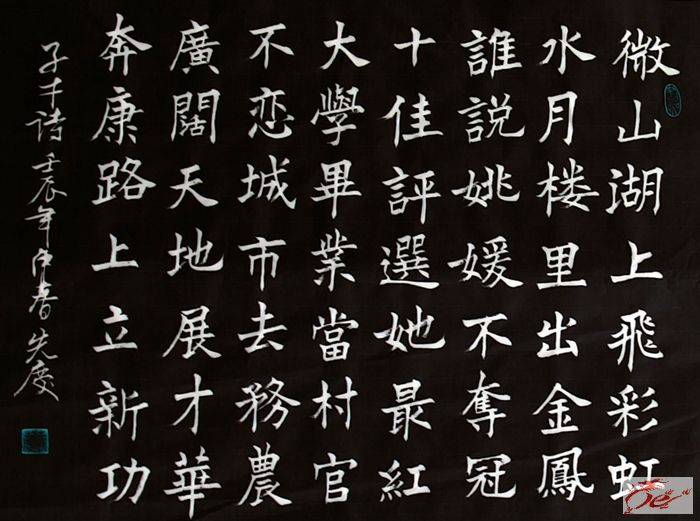 微山湖上飛彩虹
水月楼里出金鳳
誰説姚媛不奪冠
十佳評選她最紅
大學畢業當村官
不恋城市去務農
廣闊天地展才華
奔康路上立新功
子千詩壬辰年中春先慶